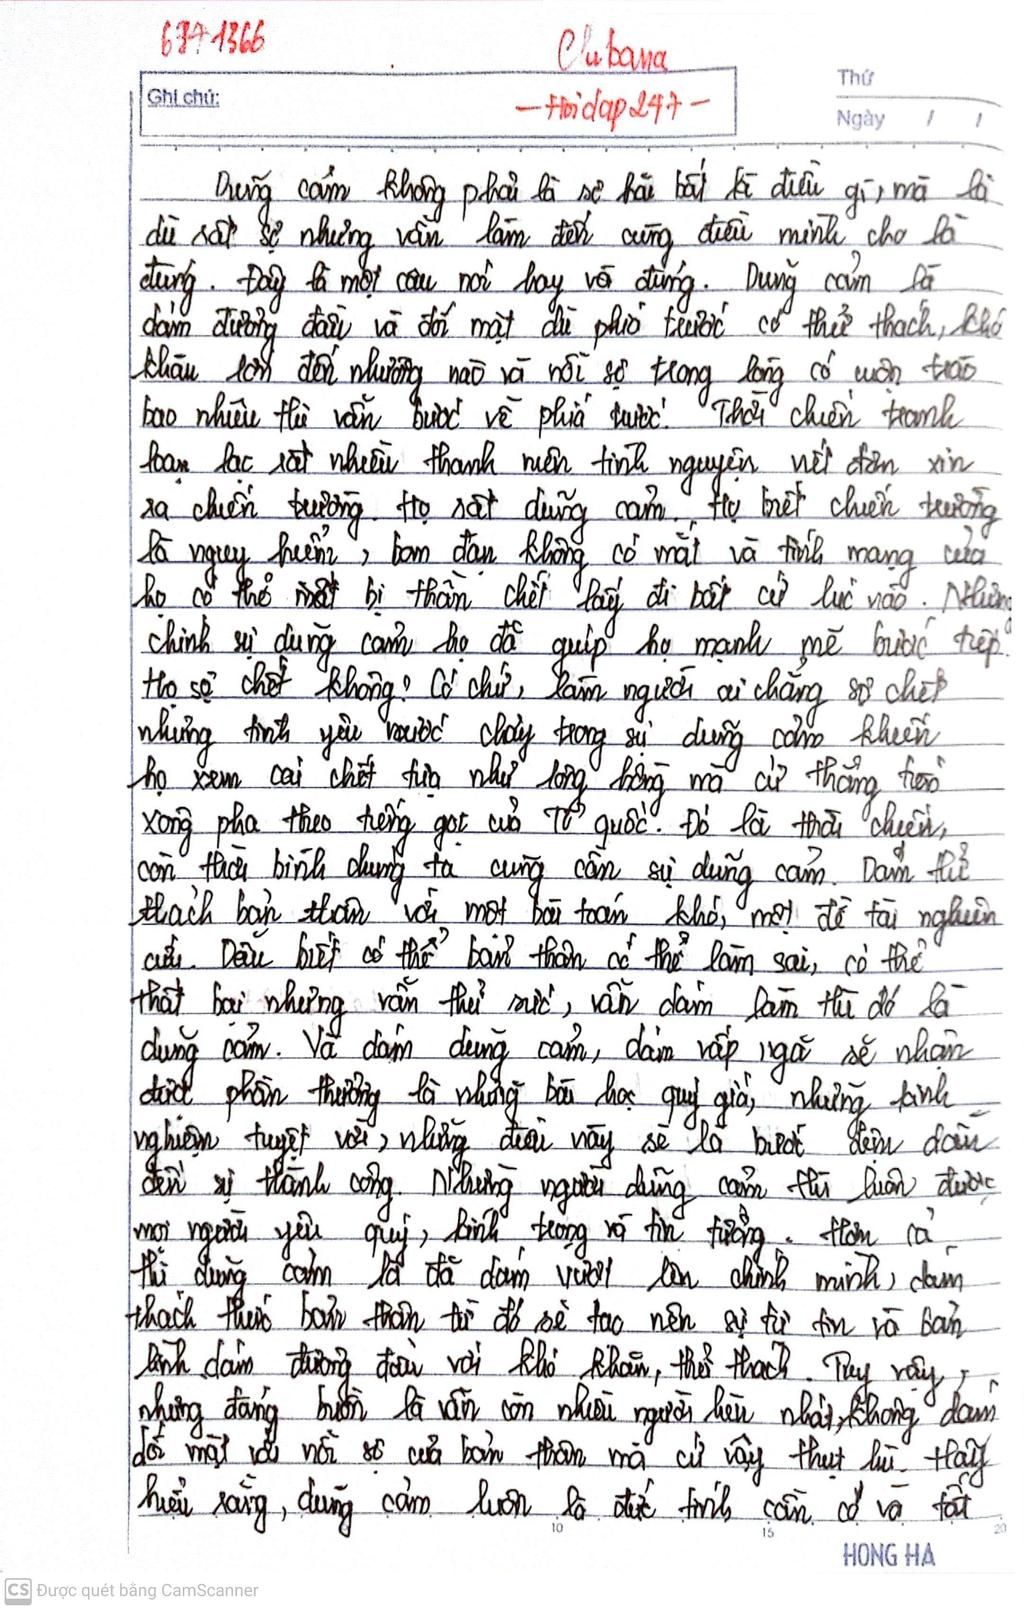 6971366
Clubana
- Hoidap247 -
Ghi chú:
Thứ
Ngày / /
Dũng cảm không phải là sợ hãi bất kì điều gì, mà là
dù rất sợ nhưng vẫn làm đến cùng điều mình cho là
đúng. Đây là một câu nói hay và đúng. Dũng cảm là
dám đương đầu và đối mặt dù phía trước có thử thách, khó
khăn lớn đến nhường nào và nỗi sợ trong lòng có cuộn trào
bao nhiêu thì vẫn bước về phía trước. Thời chiến tranh
loạn lạc rất nhiều thanh niên tình nguyện viết đơn xin
ra chiến trường. Họ rất dũng cảm. Họ biết chiến trường
là nguy hiểm, bom đạn không có mắt và tính mạng của
họ có thể bị thần chết lấy đi bất cứ lúc nào. Nhưng
chính sự dũng cảm họ đã giúp họ mạnh mẽ bước tiếp.
Họ sợ chết không? Có chứ, làm người ai chẳng sợ chết
nhưng tình yêu nước cháy trong sự dũng cảm khiến
họ xem cái chết tựa như lông hồng mà cứ thẳng tiến
xông pha theo tiếng gọi của Tổ quốc. Đó là thời chiến,
còn thời bình chúng ta cũng cần sự dũng cảm. Dám thử
thách bản thân với một bài toán khó, một đề tài nghiên
cứu. Dẫu biết có thể bản thân có thể làm sai, có thể
thất bại nhưng vẫn thử sức, vẫn dám làm thì đó là
dũng cảm. Và dám dũng cảm, dám vấp ngã sẽ nhận
được phần thưởng là những bài học quý giá, những kinh
nghiệm tuyệt vời, những điều này sẽ là bước đệm dẫn
đến sự thành công. Những người dũng cảm thì luôn được
mọi người yêu quý, kính trọng và tin tưởng. Hơn cả
thì dũng cảm là đã dám vượt lên chính mình, dám
thách thức bản thân từ đó sẽ tạo nên sự tự tin và bản
lĩnh dám đương đầu với khó khăn, thử thách. Tuy vậy,
nhưng đáng buồn là vẫn còn nhiều người hèn nhát, không dám
đối mặt với nỗi sợ của bản thân mà cứ vậy thụt lùi. Hãy
hiểu rằng, dũng cảm luôn là đức tính cần có và tất
10 15 20
HONG HA
CS Được quét bằng CamScanner